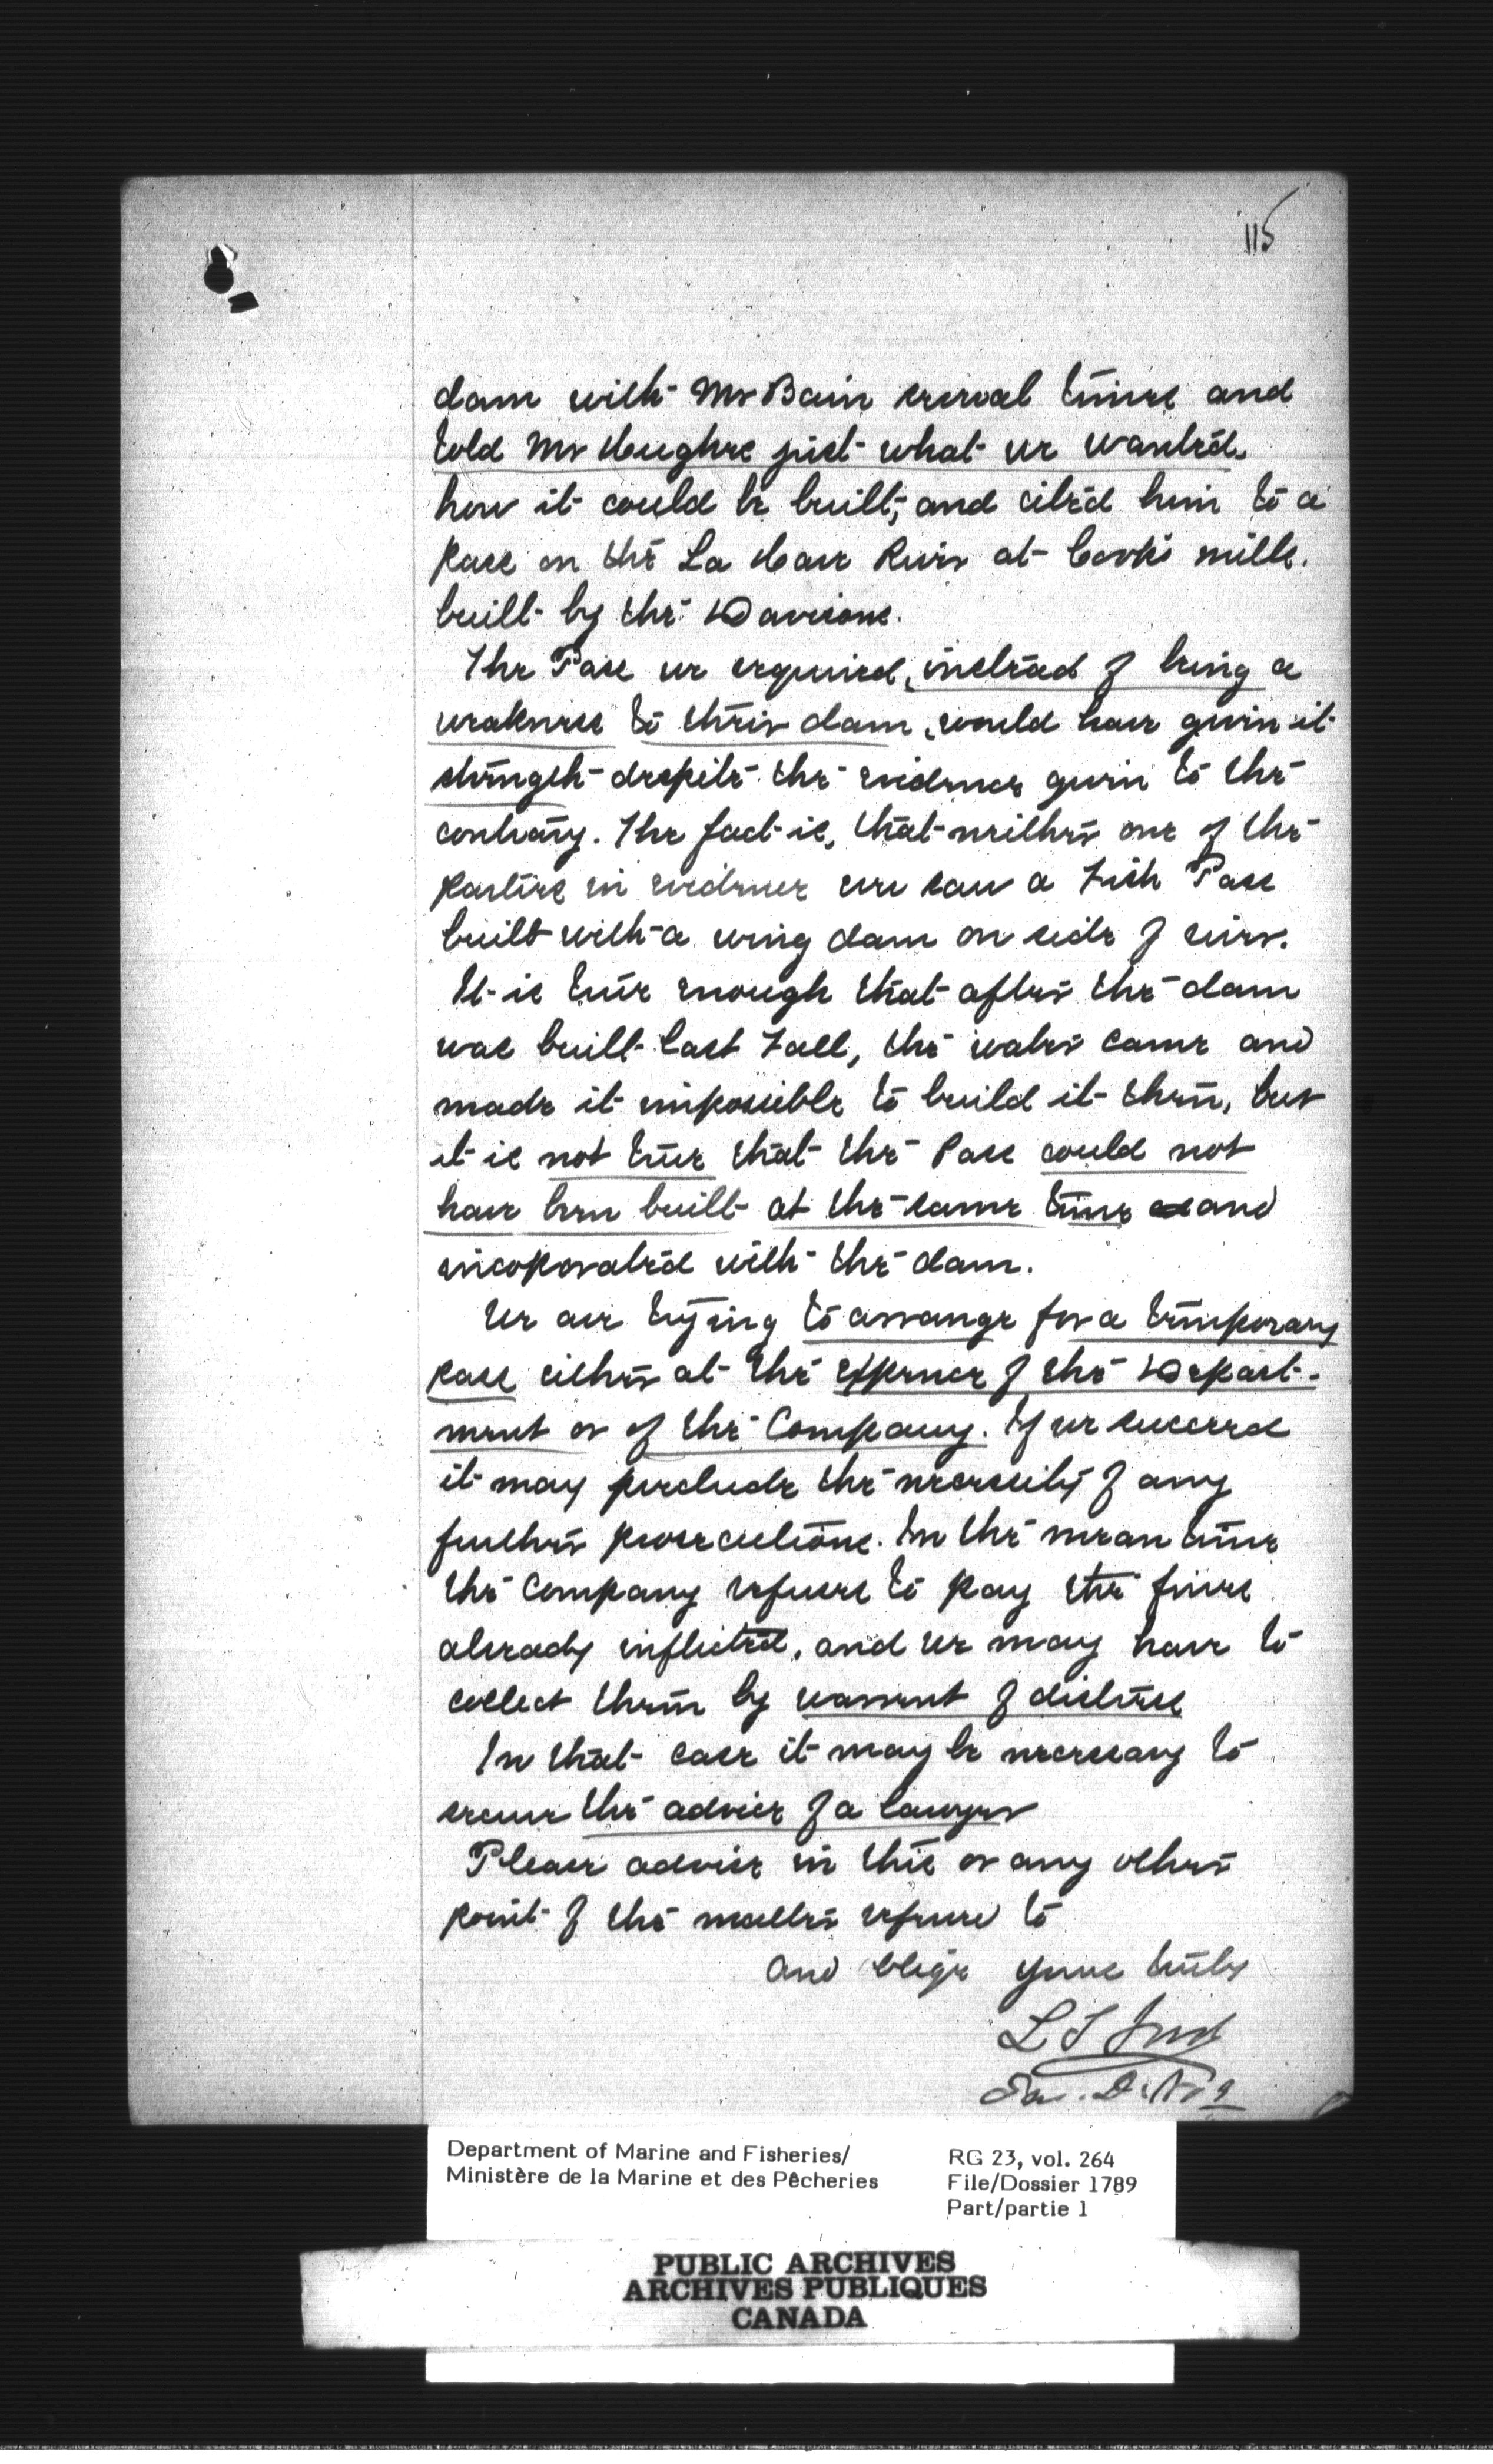 115
dam with Mr Bain several times and
told Mr Hughes just what we wanted,
how it could be built, and cited him to a
pass on the La Have River at Cooks mills.
built by the Davisons.
The Pass we required, instead of being a
weakness to their dam, would have given it
strength despite the evidence given to the
contrary. The fact is, that neither one of the
parties in evidence ever saw a Fish Pass
built with a wing dam on side of river.
It is true enough that after the dam
was built last Fall, the water came and
made it impossible to build it then, but
it is not true that the Pass could not
have been built at the same time and
incoporated with the dam.
We are trying to arrange for a temporary
pass either at the expense of the Depart-
ment or of the Company. If we succeed
it may preclude the necessity of any
further prosecutions. In the mean time
the Company refuses to pay the fines
already inflicted, and we may have to
collect them by warrent of distress
In that case it may be necessary to
secure the advice of a lawyer
Please advise in this or any other
point of the matter refured to
and oblige yours truly
L S Ford
Department of Marine and Fisheries/
Ministère de la Marine et des Pêcheries
RG 23, vol. 264
File/Dossier 1789
Part/partie 1
PUBLIC ARCHIVES
ARCHIVES PUBLIQUES
CANADA